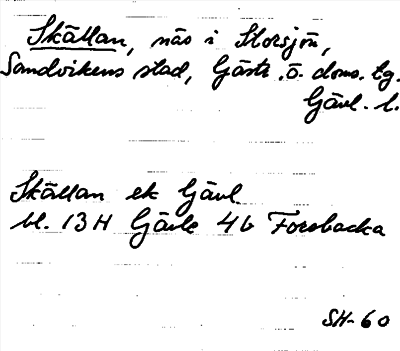 Skällan, näs i Storsjön,
Sandvikens stad, Gästr. ö. doms. tg.
Gävl. l.
Skällan ek Gävl.
bl. 13H Gävle 4b Forsbacka
SH-60